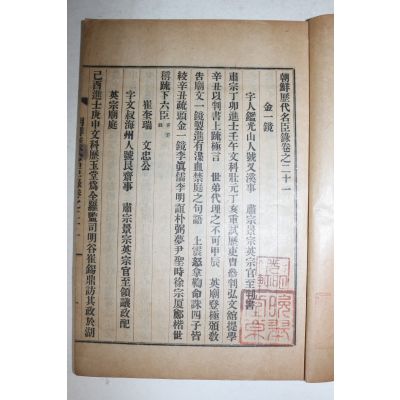 朝鮮歷代名臣錄卷之二十一
金一鏡
字人鑑光山人號丫溪事　肅宗景宗英宗官至判書
肅宗丁卯進士壬午文科壯元丁亥重試歷吏曹參判弘文舘提學
辛丑以判書上疏極言　世弟代理之不可甲辰　英廟登極頒敎
告廟文一鏡製進有渫血禁庭之句語　上震怒拿鞫命誅四子皆
絞辛丑疏頭金一鏡李眞儒李明誼朴弼夢尹聖時徐宗厦鄭楷世
稱疏下六臣
崔奎瑞　文忠公
字文叔海州人號艮齋事　肅宗景宗英宗官至領議政配
英宗廟庭
己酉進士庚申文科歷玉堂爲全羅監司明谷崔錫鼎訪其政於湖